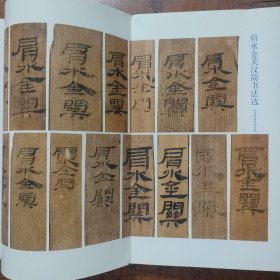 肩水金关汉简书法选
肩水金關
肩水金關
肩水金關
肩水金關
肩水金關
肩水金關
肩水金關
肩水金關
肩水金關
肩水金關
肩水金關
金關
肩水金關